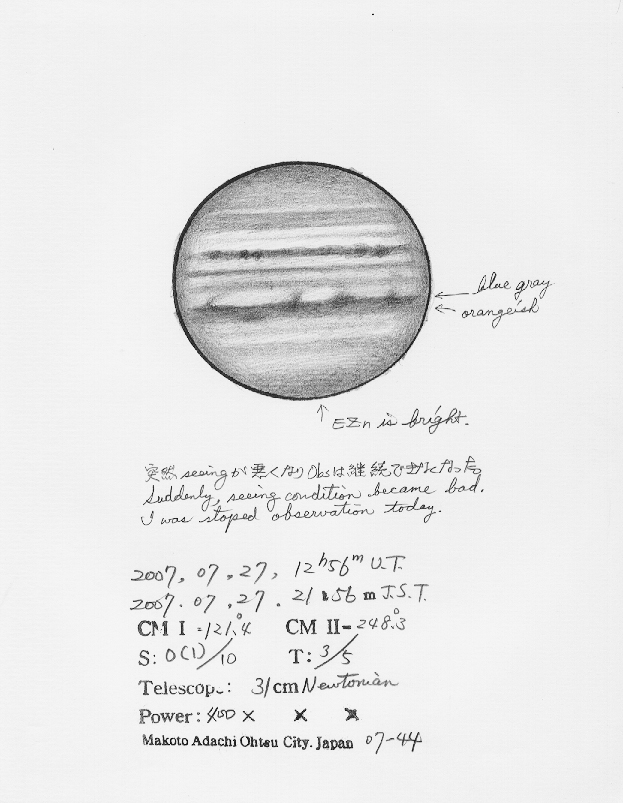 blue gray
orangeish
EZn is bright.
突然 seeing が悪くなり Obsは継続できなくなった
Suddenly, seeing condition became bad.
I was stoped observation today.
2007, 07, 27, 12h56m U.T.
2007. 07. 27. 21 56 m J.S.T.
CM I - 121.°4 CM II - 248.°3
S: 0(1)/10 T: 3/5
Telescop.: 31cm Newtonian
Power: 400 × × ×
Makoto Adachi Ohtsu City. Japan 07-44